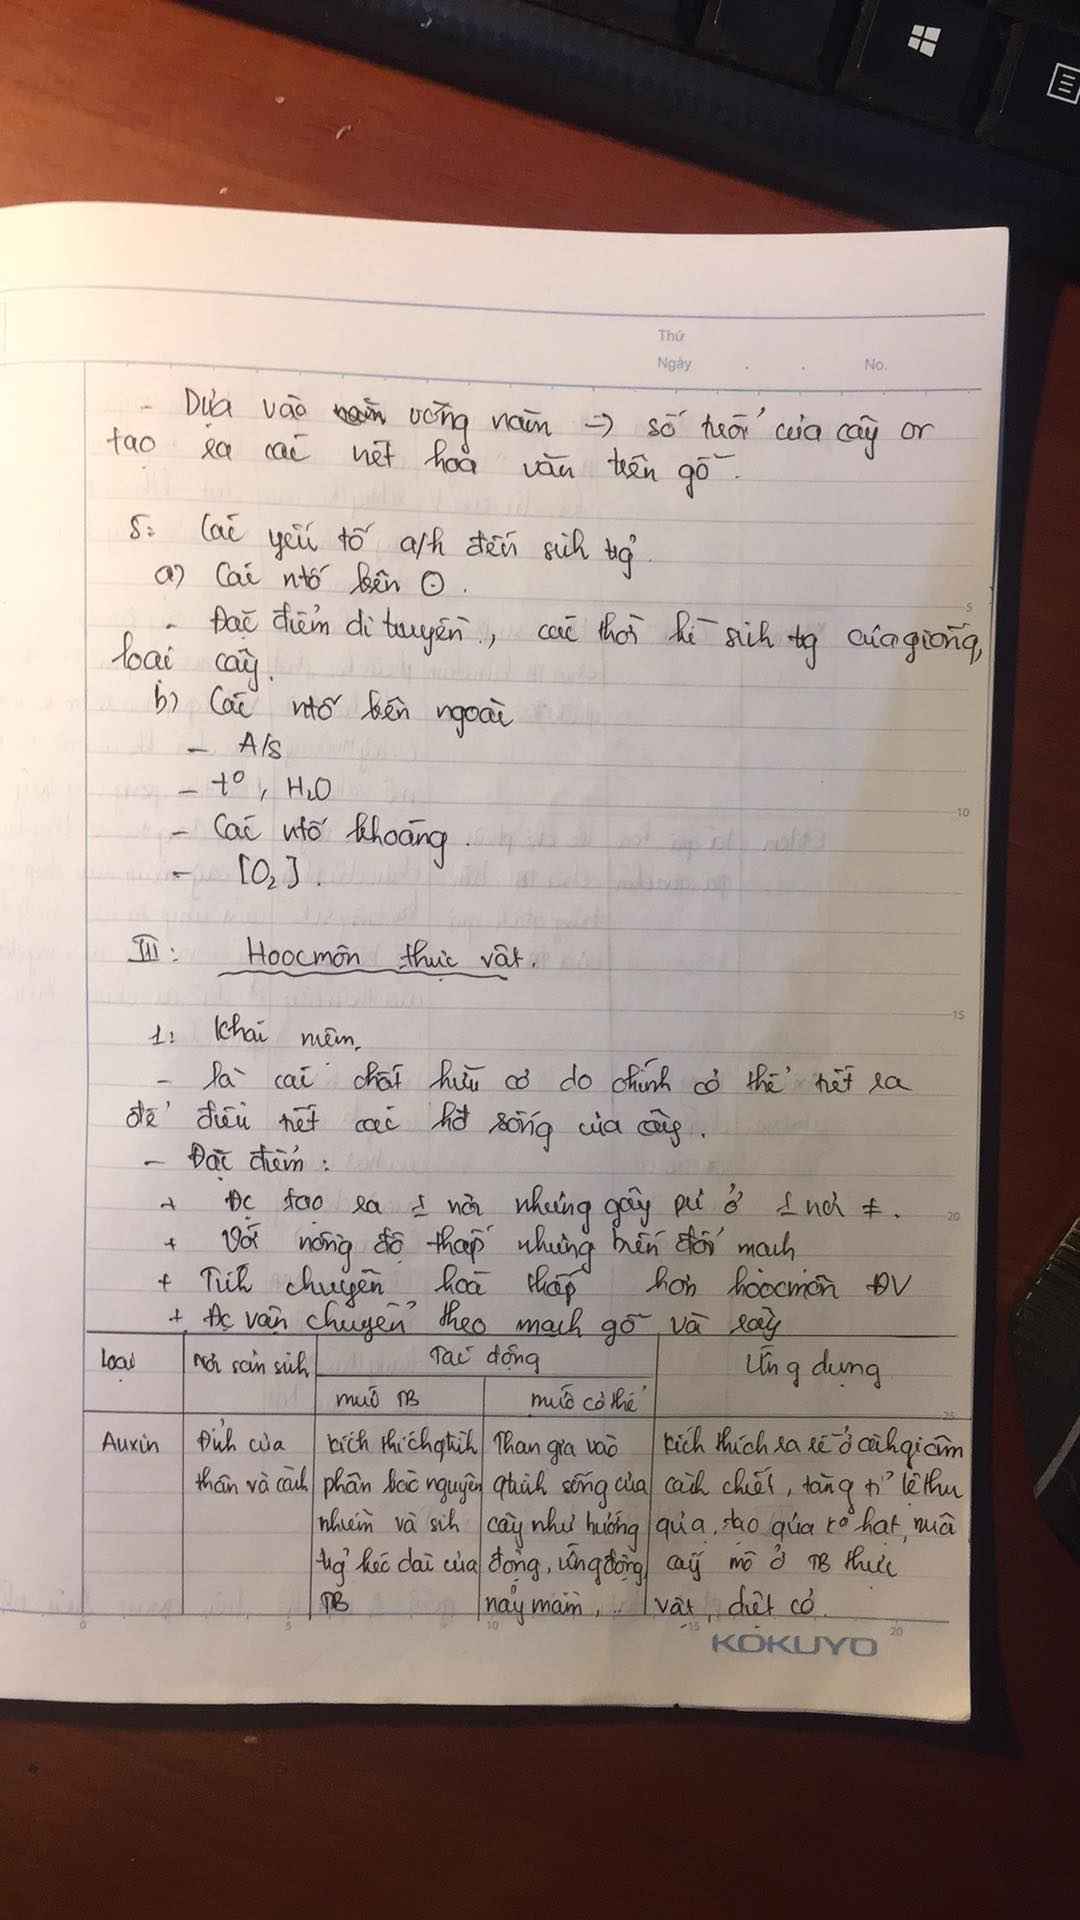 Thứ
Ngày . . No.
- Dựa vào vòng năm => số tuổi của cây or
tạo ra các nét hoa văn trên gỗ.
5: Các yếu tố a/h đến sinh tg
a) Các ntố bên ⊙.
- Đặc điểm di truyền, các thời kì sinh tg của giống,
loài cây.
b) Các ntố bên ngoài
- A/s
- t°, H₂O
- Các ntố khoáng.
- [O₂].
III: Hoocmôn thực vật.
1: Khái niệm.
- là các chất hữu cơ do chính cơ thể tiết ra
để điều tiết các hđ sống của cây.
- Đặc điểm:
+ Đc tạo ra 1 nơi nhưng gây pư ở 1 nơi ≠.
+ Với nồng độ thấp nhưng biến đổi mạnh
+ Tính chuyên hoá thấp hơn hoocmôn ĐV
+ Đc vận chuyển theo mạch gỗ và rây
Loại Nơi sản sinh Tác động Ứng dụng
mức TB mức cơ thể
Auxin Đỉnh của kích thích qtrình Tham gia vào kích thích ra rễ ở cành giâm
thân và cành phân bào nguyên qtrình sống của cành chiết, tăng tỉ lệ thụ
nhiễm và sinh cây như hướng quả, tạo quả k° hạt, nuôi
tg kéo dài của động, ứng động, cấy mô ở TB thực
TB nảy mầm,... vật, diệt cỏ.
KOKUYO